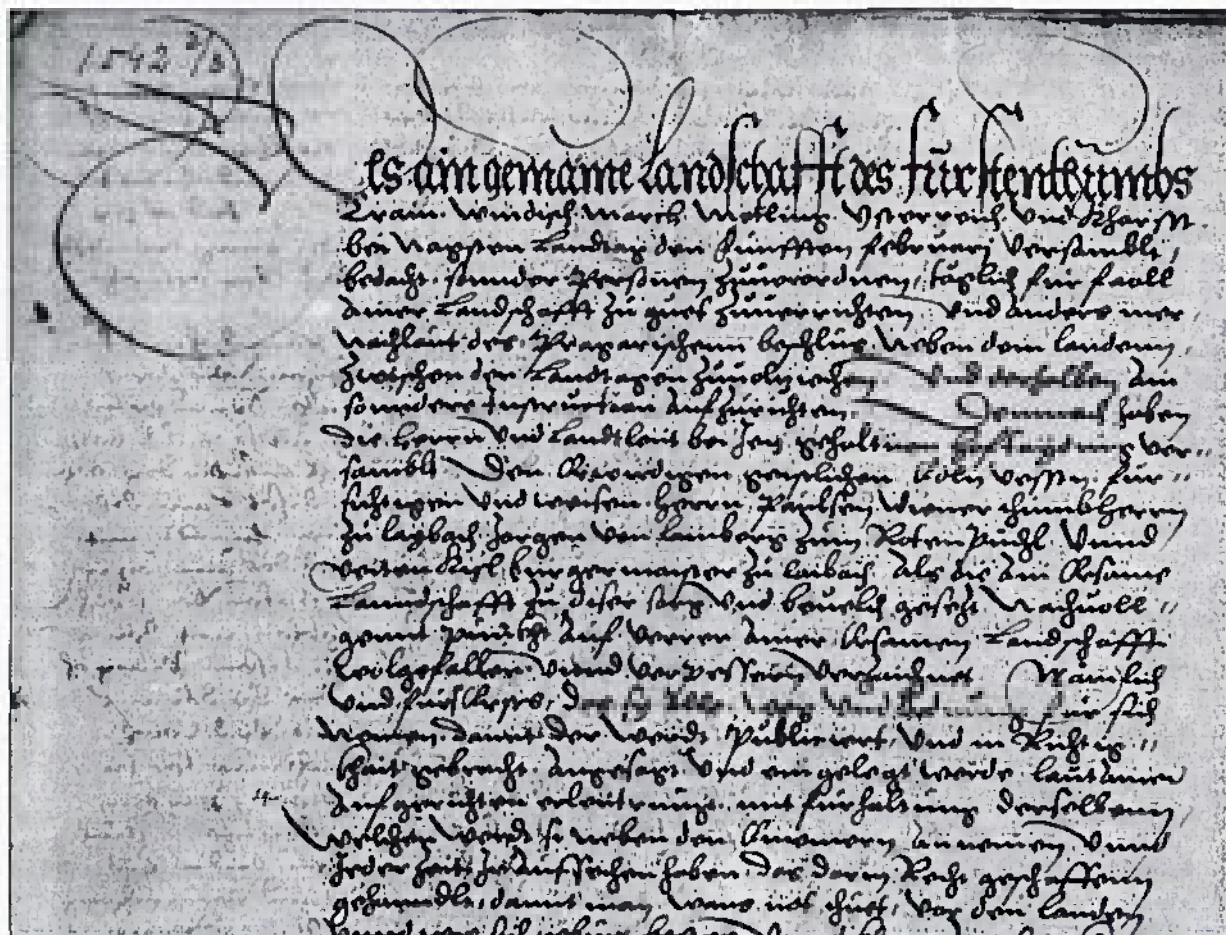 1542 2/3
Als ain gemaine Landschafft des Fürstenthumbs
Crain Windisch March Metling Ysterreich vnd Kharsst
bei nagsten Landtag den Funfften Februarj versamblt,
bedacht sonder Personen zuuerordnen, täglich fur faall
ainer Landschafft zu guet zuuerrichten vnd anders mer
nachlaut des Pragarischenn beschlus neben dem landenn
zwischen den Landtagen zuuolziechen vnd derhalben ain
sonndere Instruction aufzurichten Demnach haben
die Herrn vnd Landtleut bei Jetz gehaltnen Hoftayding ver-
samblt Den Erwirdigen geistlichen Edln vessten fur-
sichtigen vnd weisen Herrn Paulsen Wiener thumbherrn
zu Laybach Jorgen von Lamberg zum Roten Puchl vnnd
Veiten Kisl Burgermaister zu Laibach Als die ain Ersame
Lanndschafft zu diser sorg vnd beuelch gesetzt nachuoll-
gennt auf verrer ainer Ersamen Landschafft
wolgefallen vnnd verpessern verzaichnet Nämlich
vnd fürs Erst, das sy vnd für sich
nemen damit der werdt Publiciert vnd in Richtig-
khait gebracht Angesagt vnd eingelegt werde laut ainer
aufgerichten erleutrung mit fürhaltung derselbenn,
welchen werdt si neben den Einemern annemen vnnd
Jeder Zeit Jr aufsechen haben das darin Recht geschaffenn
gehanndlt, damit man wans not thuet, vor den Landen